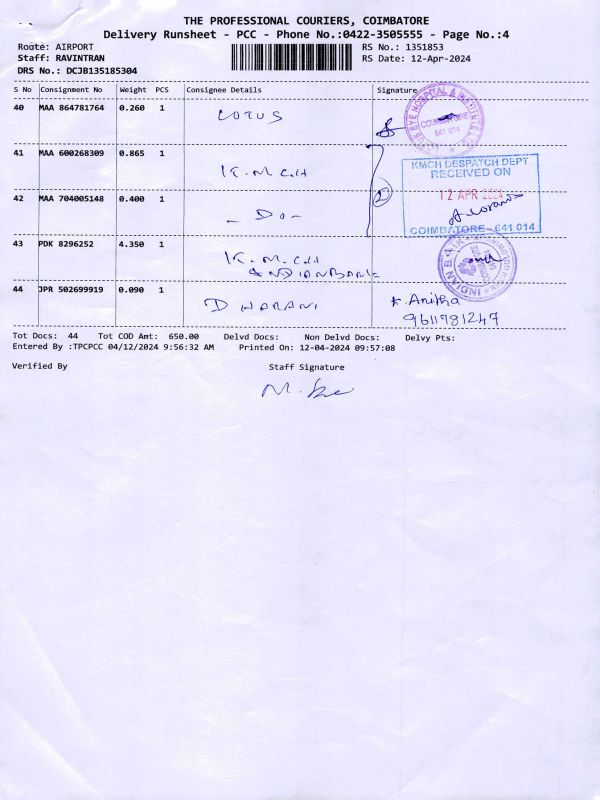 THE PROFESSIONAL COURIERS, COIMBATORE
Delivery Runsheet - PCC - Phone No.:0422-3505555 - Page No.:4
Route: AIRPORT RS No.: 1351853
Staff: RAVINTRAN RS Date: 12-Apr-2024
DRS No.: DCJB135185304
S No Consignment No Weight PCS Consignee Details Signature
40 MAA 864781764 0.260 1 LOTUS
EYE HOSPITAL &
COIMBATORE
641 014
41 MAA 600268309 0.865 1 K.M.C.H
KMCH DESPATCH DEPT
RECEIVED ON
12 APR 2024
COIMBATORE - 641 014
42 MAA 704005148 0.400 1 - Do - 2
43 PDK 8296252 4.350 1 K.M.C.H
INDIAN BANK
INDIAN BANK
44 JPR 502699919 0.090 1 DHARANI K. Anitha
9611981247
Tot Docs: 44 Tot COD Amt: 650.00 Delvd Docs: Non Delvd Docs: Delvy Pts:
Entered By :TPCPCC 04/12/2024 9:56:32 AM Printed On: 12-04-2024 09:57:08
Verified By Staff Signature